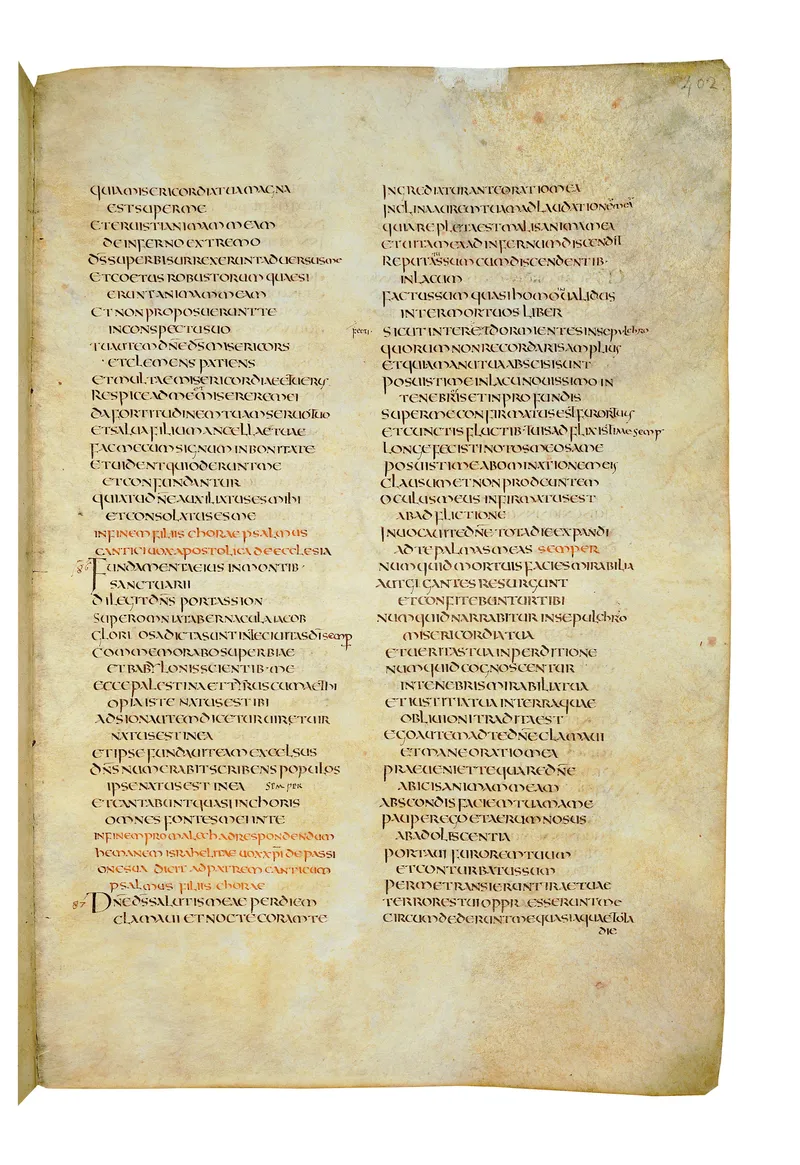 402
QUIAMISERICORDIATUAMAGNA
ESTSUPERME
ETERUISTIANIMAMMEAM
DEINFERNOEXTREMO
DS̄SUPERBISURREXERUNTADUERSUSME
ETCOETUSROBUSTORUMQUAESI
ERUNTANIMAMMEAM
ETNONPROPOSUERUNTTE
INCONSPECTUSUO
TUAUTEMDN̄EDS̄MISERICORS
ETCLEMENSPATIENS
ETMULTAEMISERICORDIAEETUERUS
RESPICEADMEETMISEREREMEI
DAFORTITUDINEMTUAMSERUOTUO
ETSALUAFILIUMANCELLAETUAE
FACMECUMSIGNUMINBONITATE
ETUIDENTQUIODERUNTME
ETCONFUNDANTUR
QUIATUDN̄EAUXILIATUSESMIHI
ETCONSOLATUSESME
INFINEMFILIISCHORAEPSALMUS
CANTICIUOXAPOSTOLICADEECCLESIA
86 FUNDAMENTAEIUSINMONTIB·
SANCTUARII
DILEGITDN̄SPORTASSION
SUPEROMNIATABERNACULAIACOB
GLORIOSADICTASUNTINTECIUITASDĪSEMP
COMMEMORABOSUPERBIAE
ETBABYLONISSCIENTIB·ME
ECCEPALESTINAETTYRUSCUMAETHI
OPIAISTENATUSESTIBI
ADSIONAUTEMDICETURUIRETUIR
NATUSESTINEA
ETIPSEFUNDAUITEAMEXCELSUS
DN̄SNUMERABITSCRIBENSPOPULOS
IPSENATUSESTINEA SEMPER
ETCANTABUNTQUASIINCHORIS
OMNESFONTESMEIINTE
INFINEMPROMALECHADRESPONDENDUM
HEMANEMISRAHELITAEUOXXP̄IDEPASSI
ONESUADICITADPATREMCANTICUM
PSALMUSFILIISCHORAE
87 DN̄EDS̄SALUTISMEAEPERDIEM
CLAMAUIETNOCTECORAMTE
INGREDIATURANTEORATIOMEA
INCLINAAUREMTUAMADLAUDATIONĒMEĀ
QUIAREPLETAESTMALISANIMAMEA
ETUITAMEAADINFERNUMDISCENDIT
REPUTATUSSUMCUMDISCENDENTIB·
INLACUM
FACTUSSUMQUASIHOMOINUALIDUS
INTERMORTUOSLIBER
SICUTINTERFECTIDORMIENTESINSEPULCHRO
QUORUMNONRECORDARISAMPLIUS
ETQUIAMANUTUAABSCISISUNT
POSUISTIMEINLACUNOUISSIMOIN
TENEBRISETINPROFUNDIS
SUPERMECONFIRMATUSESTFURORTUUS
ETCUNCTISFLUCTIB·TUISADFLIXISTIMESEMP·
LONGEFECISTINOTOSMEOSAME
POSUISTIMEABOMINATIONEMEIS
CLAUSUMETNONPRODEUNTEM
OCULUSMEUSINFIRMATUSEST
ABADFLICTIONE
INUOCAUITEDN̄ETOTADIEEXPANDI
ADTEPALMASMEAS SEMPER
NUMQUIDMORTUISFACIESMIRABILIA
AUTGIGANTESRESURGUNT
ETCONFITEBUNTURTIBI
NUMQUIDNARRABITURINSEPULCHRO
MISERICORDIATUA
ETUERITASTUAINPERDITIONE
NUMQUIDCOGNOSCENTUR
INTENEBRISMIRABILIATUA
ETIUSTITIATUAINTERRAQUAE
OBLIUIONITRADITAEST
EGOAUTEMADTEDN̄ECLAMAUI
ETMANEORATIOMEA
PRAEUENIETTEQUAREDN̄E
ABICISANIMAMMEAM
ABSCONDISFACIEMTUAMAME
PAUPEREGOETAERUMNOSUS
ABADOLISCENTIA
PORTAUIFUROREMTUUM
ETCONTURBATUSSUM
PERMETRANSIERUNTIRAETUAE
TERRORESTUIOPPRESSERUNTME
CIRCUMDEDERUNTMEQUASIAQUAETOTA
DIE